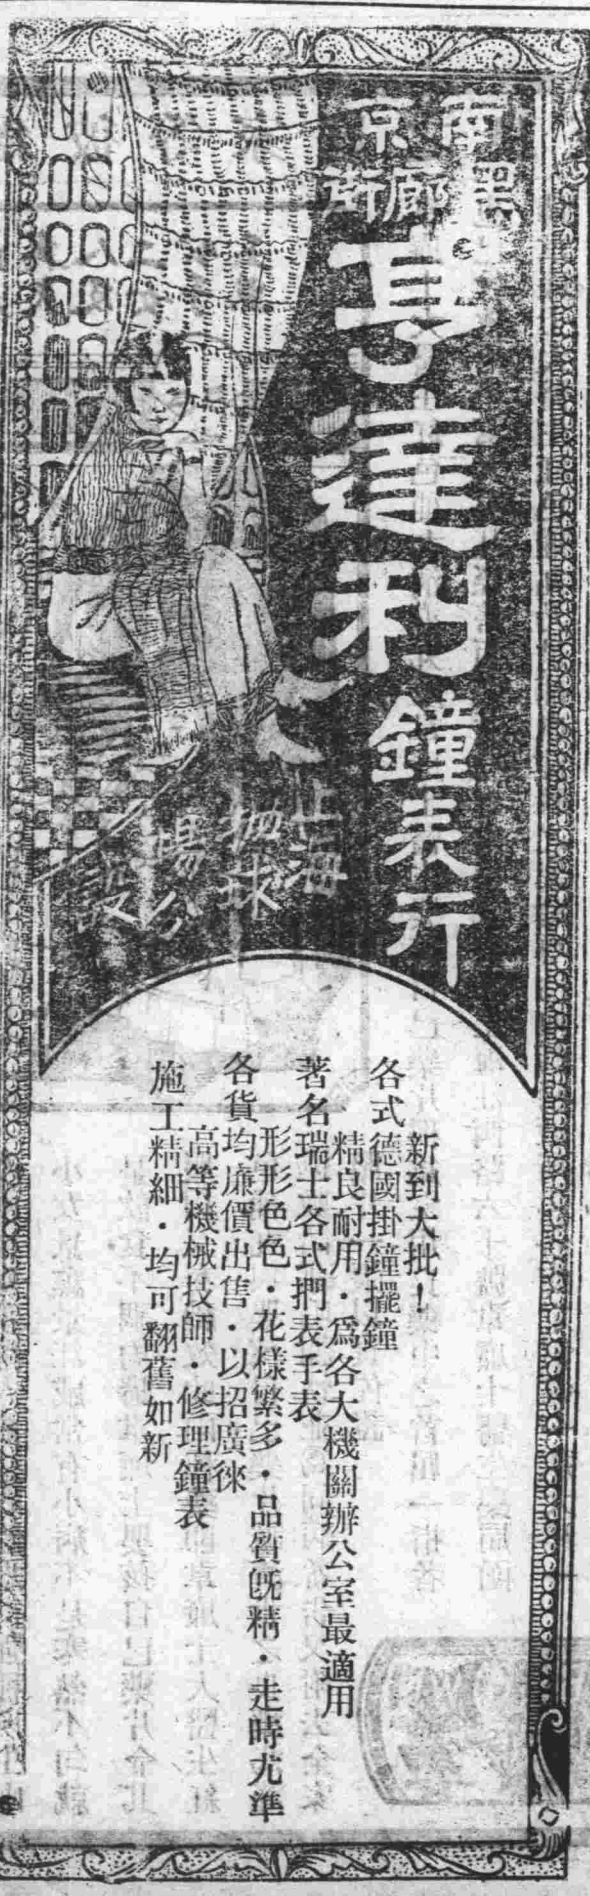 南京
黑廊街
亨達利
鐘表行
上海
拋球
場分
設
新到大批！
各式德國掛鐘擺鐘
精良耐用．爲各大機關辦公室最適用
著名瑞士各式捫表手表
形形色色．花樣繁多．品質旣精．走時尤準
各貨均廉價出售．以招廣徠
高等機械技師．修理鐘表
施工精細．均可翻舊如新